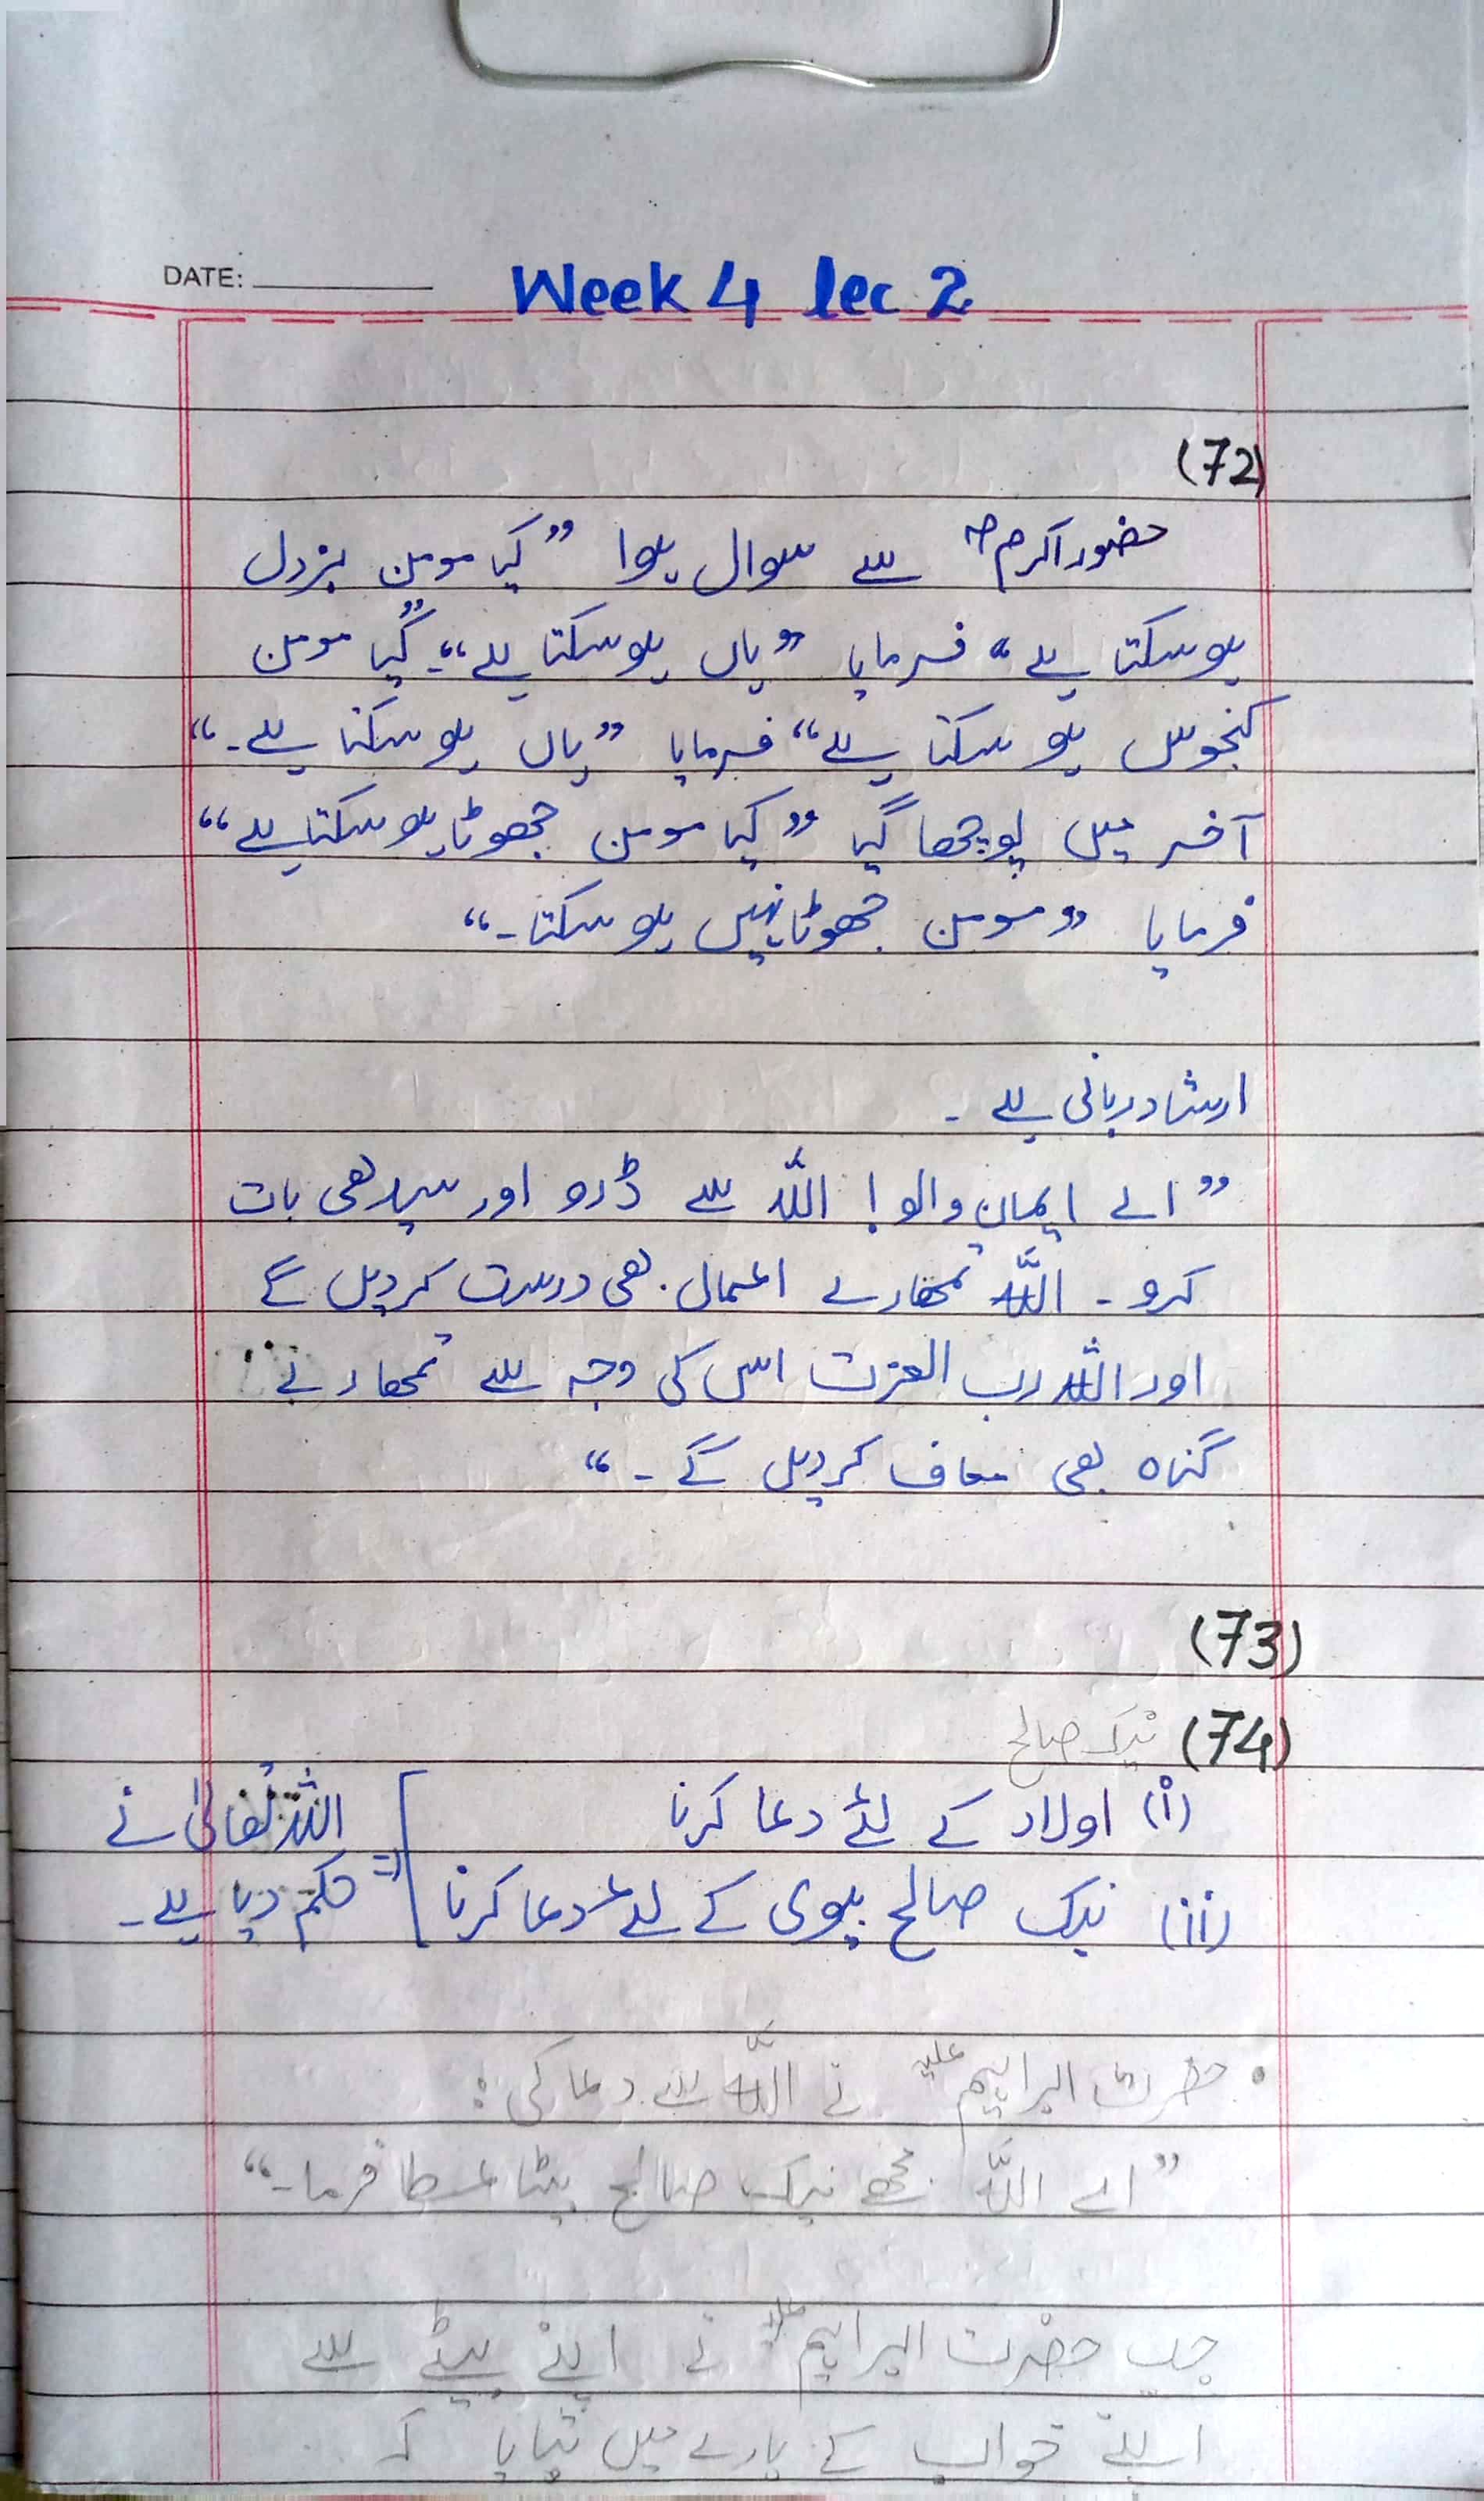 DATE:
Week 4 lec 2
(72)
حضور اکرم ؐ سے سوال ہوا ”کیا مومن بزدل
ہو سکتا ہے“ فرمایا ”ہاں ہو سکتا ہے“۔ ”کیا مومن
کنجوس ہو سکتا ہے“ فرمایا ”ہاں ہو سکتا ہے۔“
آخر میں پوچھا گیا ”کیا مومن جھوٹا ہو سکتا ہے“
فرمایا ”مومن جھوٹا نہیں ہو سکتا۔“
ارشاد ربانی ہے ۔
”اے ایمان والو! اللّٰہ سے ڈرو اور سیدھی بات
کرو ۔ اللّٰہ تمھارے اعمال بھی درست کردیں گے
اور اللّٰہ رب العزت اس کی وجہ سے تمھارے
گناہ بھی معاف کردیں گے ۔“
(73)
(74) نیک صالح
(i) اولاد کے لئے دعا کرنا
(ii) نیک صالح بیوی کے لئے دعا کرنا
اللّٰہ تعالیٰ نے
= حکم دیا ہے۔
• حضرت ابراہیم علیہ نے اللّٰہ سے دعا کی :
”اے اللّٰہ مجھے نیک صالح بیٹا عطا فرما۔“
جب حضرت ابراہیم علیہ نے اپنے بیٹے سے
اپنے خواب کے بارے میں بتایا کہ